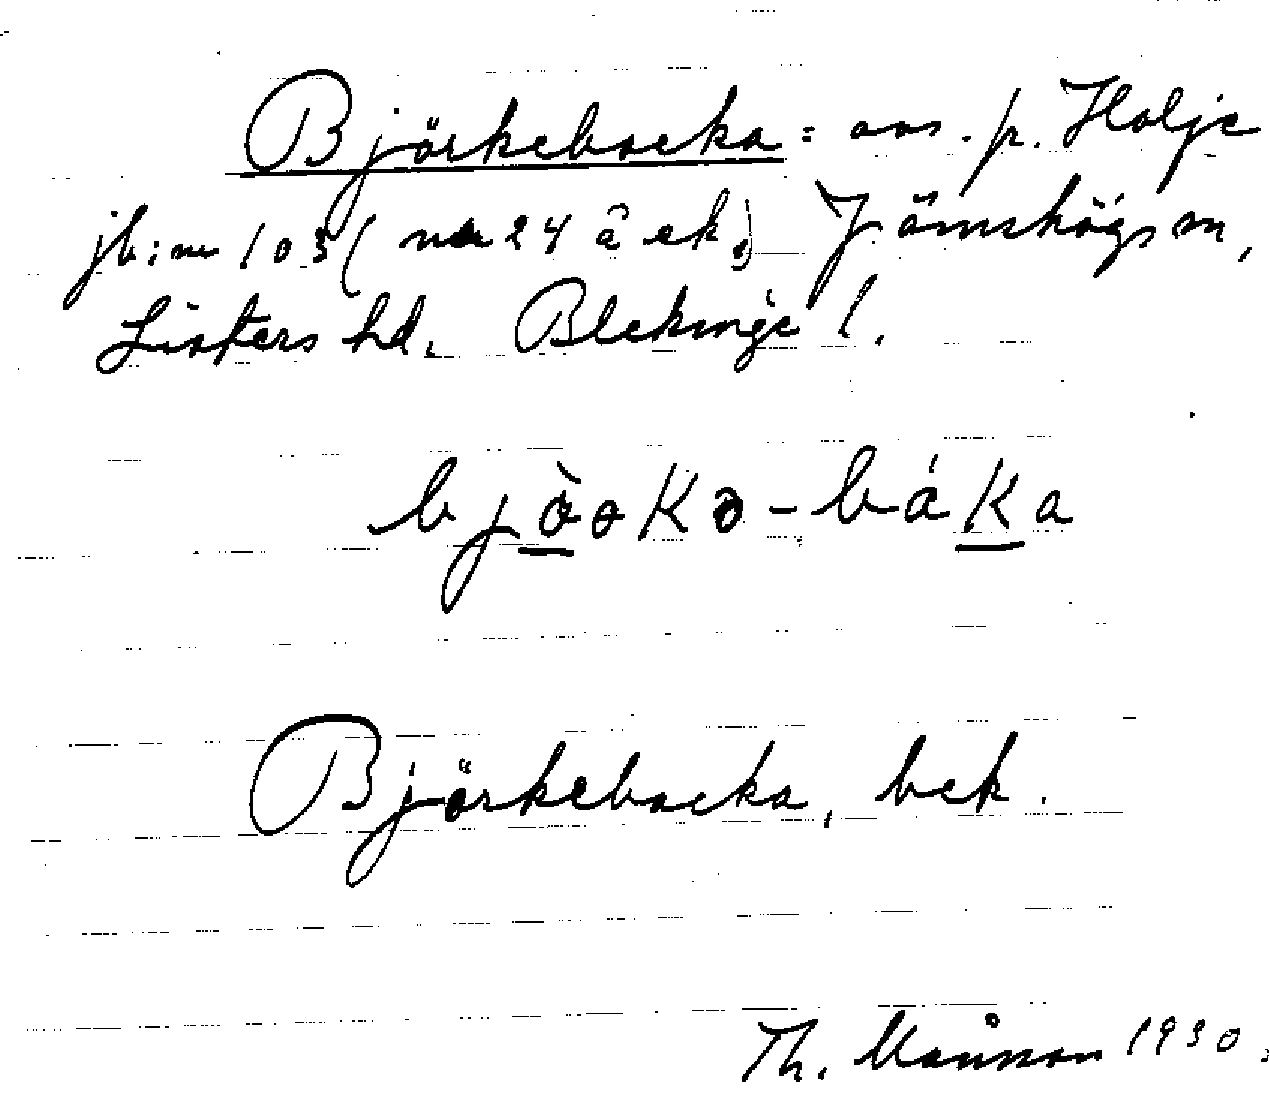 Björkebacka: avs. p. Holje
jb: nr 103 (nr 24 å ek.) Jämshögs sn,
Listers hd. Blekinge l.
bjòəkə-báka
Björkebacka, bek.
Th. Månsson 1930.